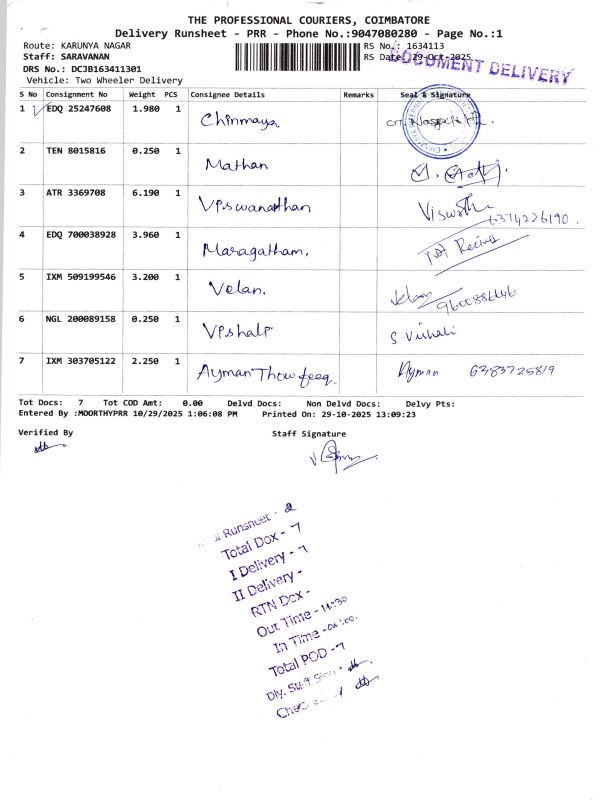 THE PROFESSIONAL COURIERS, COIMBATORE
Delivery Runsheet - PRR - Phone No.:9047080280 - Page No.:1
Route: KARUNYA NAGAR RS No.: 1634113
Staff: SARAVANAN RS Date: 29-Oct-2025
DOCUMENT DELIVERY
DRS No.: DCJB163411301
Vehicle: Two Wheeler Delivery
S No Consignment No Weight PCS Consignee Details Remarks Seal & Signature
1 EDQ 25247608 1.980 1 Chinmaya
2 TEN 8015816 0.250 1 Mathan
3 ATR 3369708 6.190 1 Viswanathan Viswath
6374226190.
4 EDQ 700038928 3.960 1 Maragatham. Received
5 IXM 509199546 3.200 1 Velan. Velan
6 NGL 200089158 0.250 1 Vishali S. Vishali
7 IXM 303705122 2.250 1 Ayman Thowfeeq. Ayman 6383725819
Tot Docs: 7 Tot COD Amt: 0.00 Delvd Docs: Non Delvd Docs: Delvy Pts:
Entered By :MOORTHYPRR 10/29/2025 1:06:08 PM Printed On: 29-10-2025 13:09:23
Verified By Staff Signature
Runsheet - 2
Total Dox - 7
I Delivery - 7
II Delivery -
RTN Dox -
Out Time - 14:30
In Time -
Total POD - 7
Dly. Staff Sign -